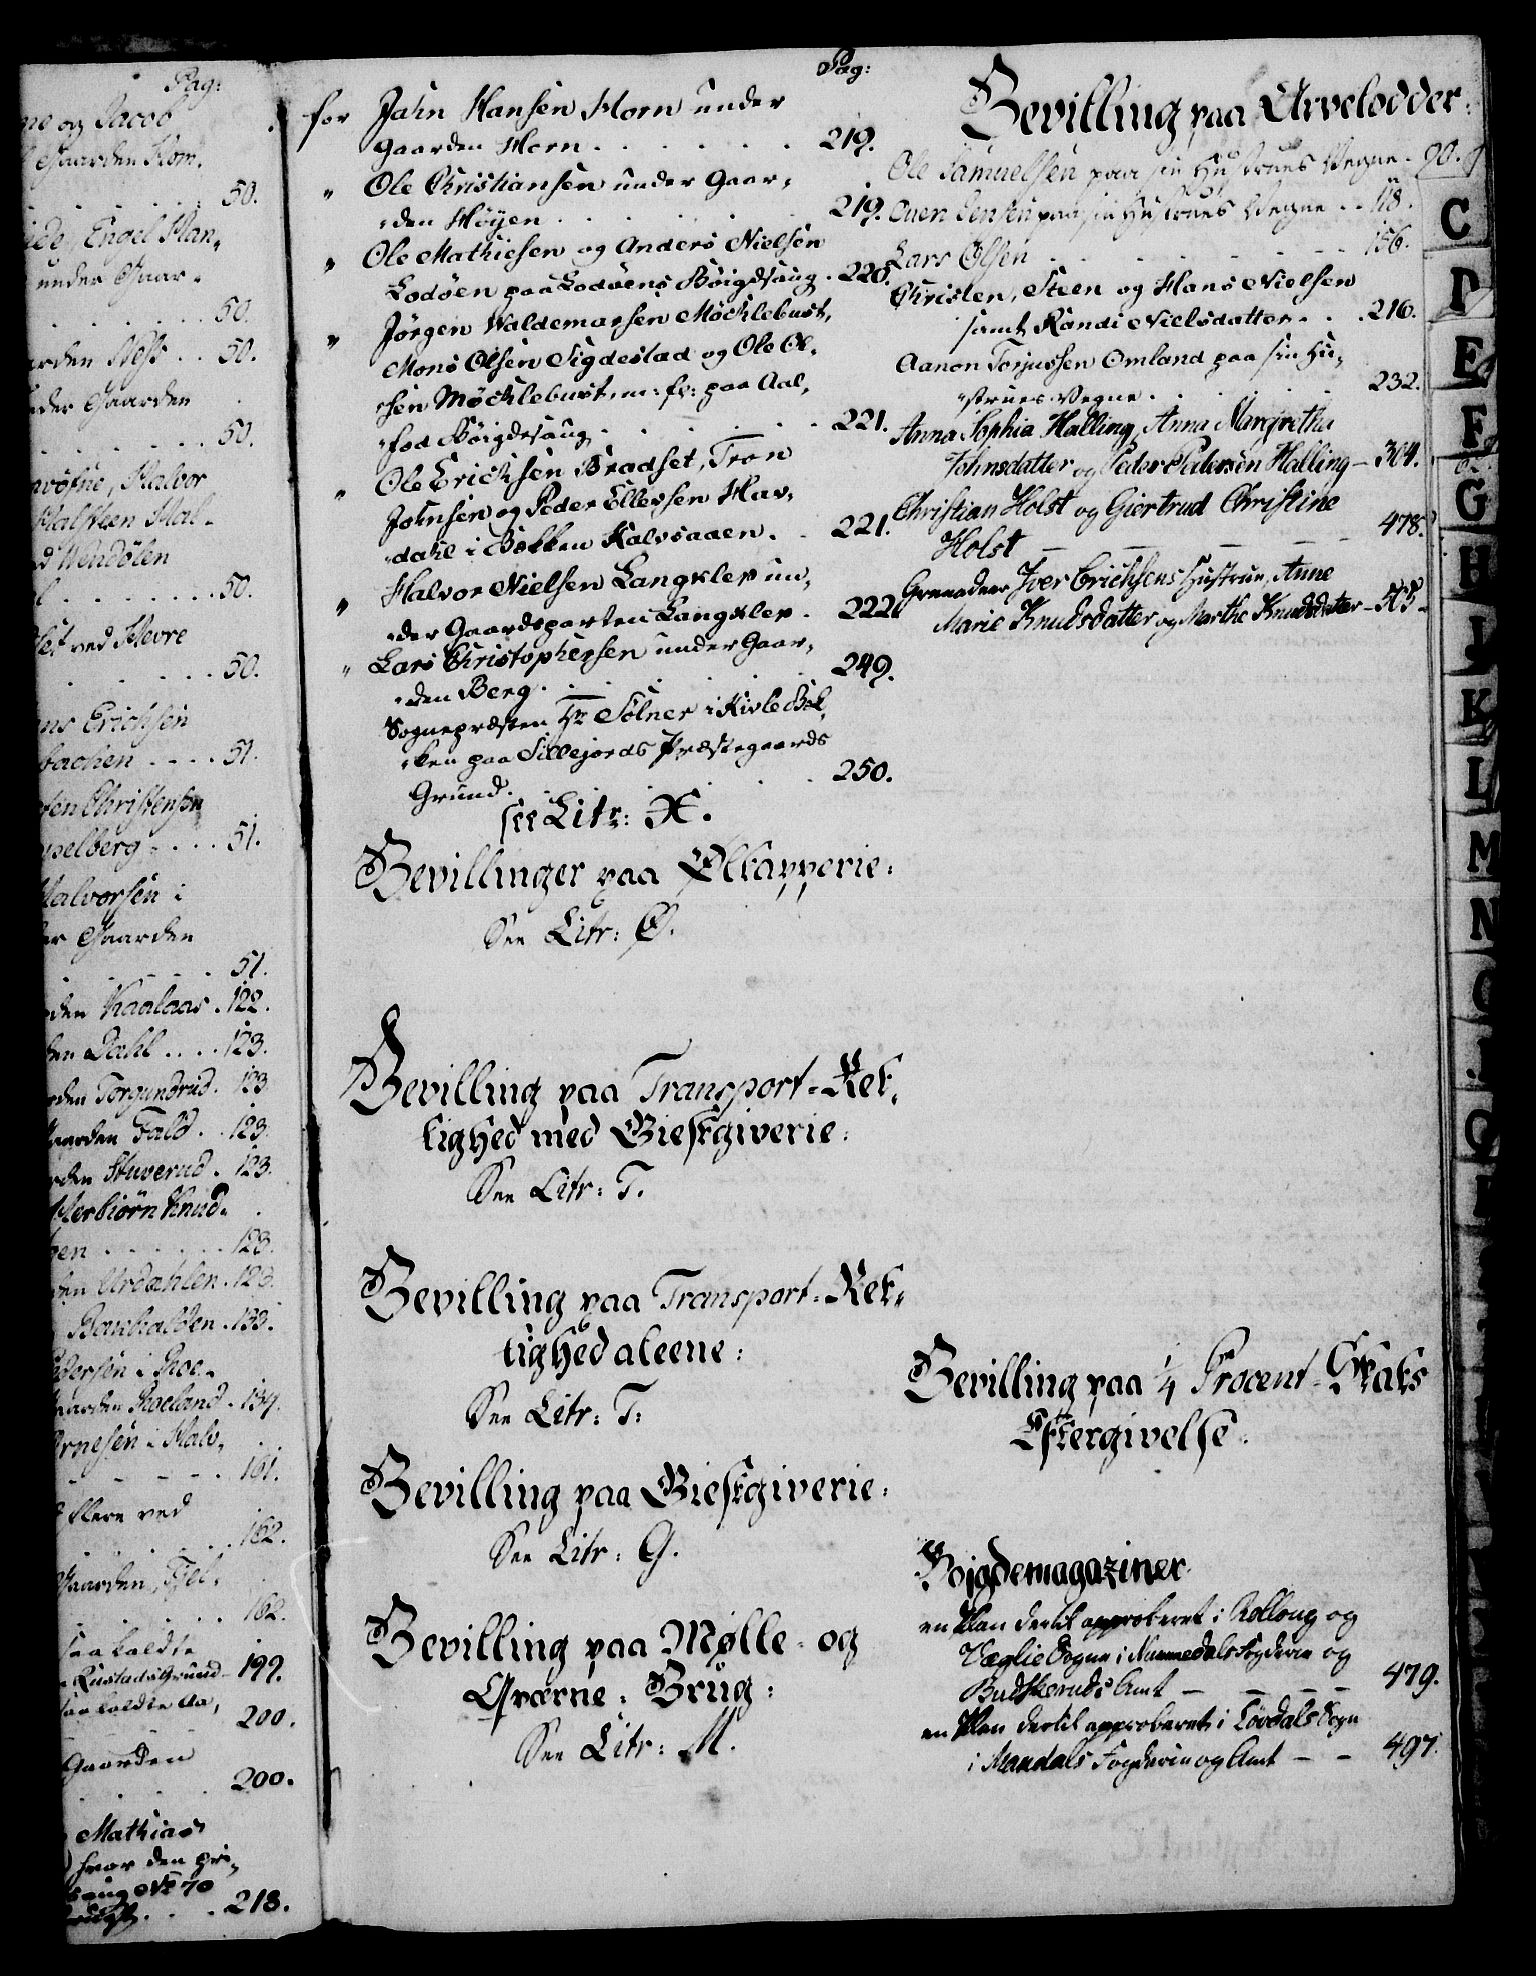 Pag:
ne og Jacob
Gaarden Kom.
50.
Engel Han,
under Gaar.
50.
arden Ness . . 50.
nder Gaarden
50.
Halvor
Halsteen Hal.
Wendölen
50.
ved Hevre
50.
ns Erichsen
bachen . . . . 51.
ten Christensen
selberg . . . . 51.
Halvorsen i
er Gaarden
51.
den Kaalaas . 122.
den Dahl . . . . 123.
rden Torgundrud . 123
aarden Fald . . 123.
rden Stuverud . 123.
Herbiörn Knud.
sen . . . . . . 123.
den Urdahlen . 123.
Bauhalden . 133.
edersen i Roe.
aarden Roeland . 134.
Arnesen i Halv,
161.
flere ved
162.
Gaarden, Fjel.
162.
saa kaldte
Rustads Grund – 199.
saa kaldte Aa,
200.
Gaarden
200.
Mathias
hvor den pri,
saug No 70
brugt . . . 218.
Pag:
for Jahn Hansen Horn under
Gaarden Horn . . . . . . 219.
" Ole Christiansen under Gaar,
„den Höyen . . . . . . 219.
" Ole Mathiesen og Anders Nielsen
Lodöen paa Lodöens Böigdsaug . 220.
" Jörgen Waldemarsen Möcklebust,
Mons Olsen Sigdestad og Ole Ol,
„sen Möcklebust, m: fl: paa Aal,
„fod Böigdesaug . . . . . 221.
" Ole Ericksen Bradset, Tron
Johnsen og Peder Ellevsen Hav,
„dahl i Bekken Kalvsaaen . . 221.
" Halvor Nielsen Langklep un,
„der Gaardsparten Langklep . 222.
" Lars Christophersen under Gaar,
„den Berg . . . . . . 249.
Sognepræsten Hr Sölner i Kivle Bek,
„ken paa Sillejords Præstegaards
Grund . . . . . . 250.
see Litr: X.
Bevillinger paa Øltapperie:
See Litr: Ø.
Bevilling paa Transport-Ret,
tighed med Giestgiverie:
See Litr: T.
Bevilling paa Transport-Ret,
tighed aleene:
See Litr: T:
Bevilling paa Giestgiverie:
See Litr: G.
Bevilling paa Mølle- og
Qværne-Brug:
See Litr: M.
Bevilling paa Arvelodder:
Ole Samuelsen paa sin Hustrues Vegne . 90.
Ouen Jensen paa sin Hustrues Vegne . . 118.
Lars Olsen . . . . . . 156.
Christen, Steen og Hans Nielsen
samt Randi Nielsdatter . . . 216.
Aanon Torjussen Omland paa sin Hu,
„strues Vegne . . . . . 232.
Anna Sophia Halling, Anna Margretha
Johnsdatter og Peder Pedersen Halling – 364.
Christian Holst og Giertrud Christine
Holst – – – – – 478.
Grenadeer Iver Erichsens Hustrue, Anne
Marie Knudsdatter og Marthe Knudsdatter –
Bevilling paa 1/4 Procent-Skats
Eftergivelse.
Bøigdemagaziner.
en Plan dertil approberet i Rolloug og
Væglie Sogne i Nummedals Fogderie og
Budskeruds Amt – – – – 479.
en Plan dertil approberet i Løvdals Sogn
i Mandals Fogderie og Amt – – 497.
C
D
E
F
G
H
I
K
L
M
N
O